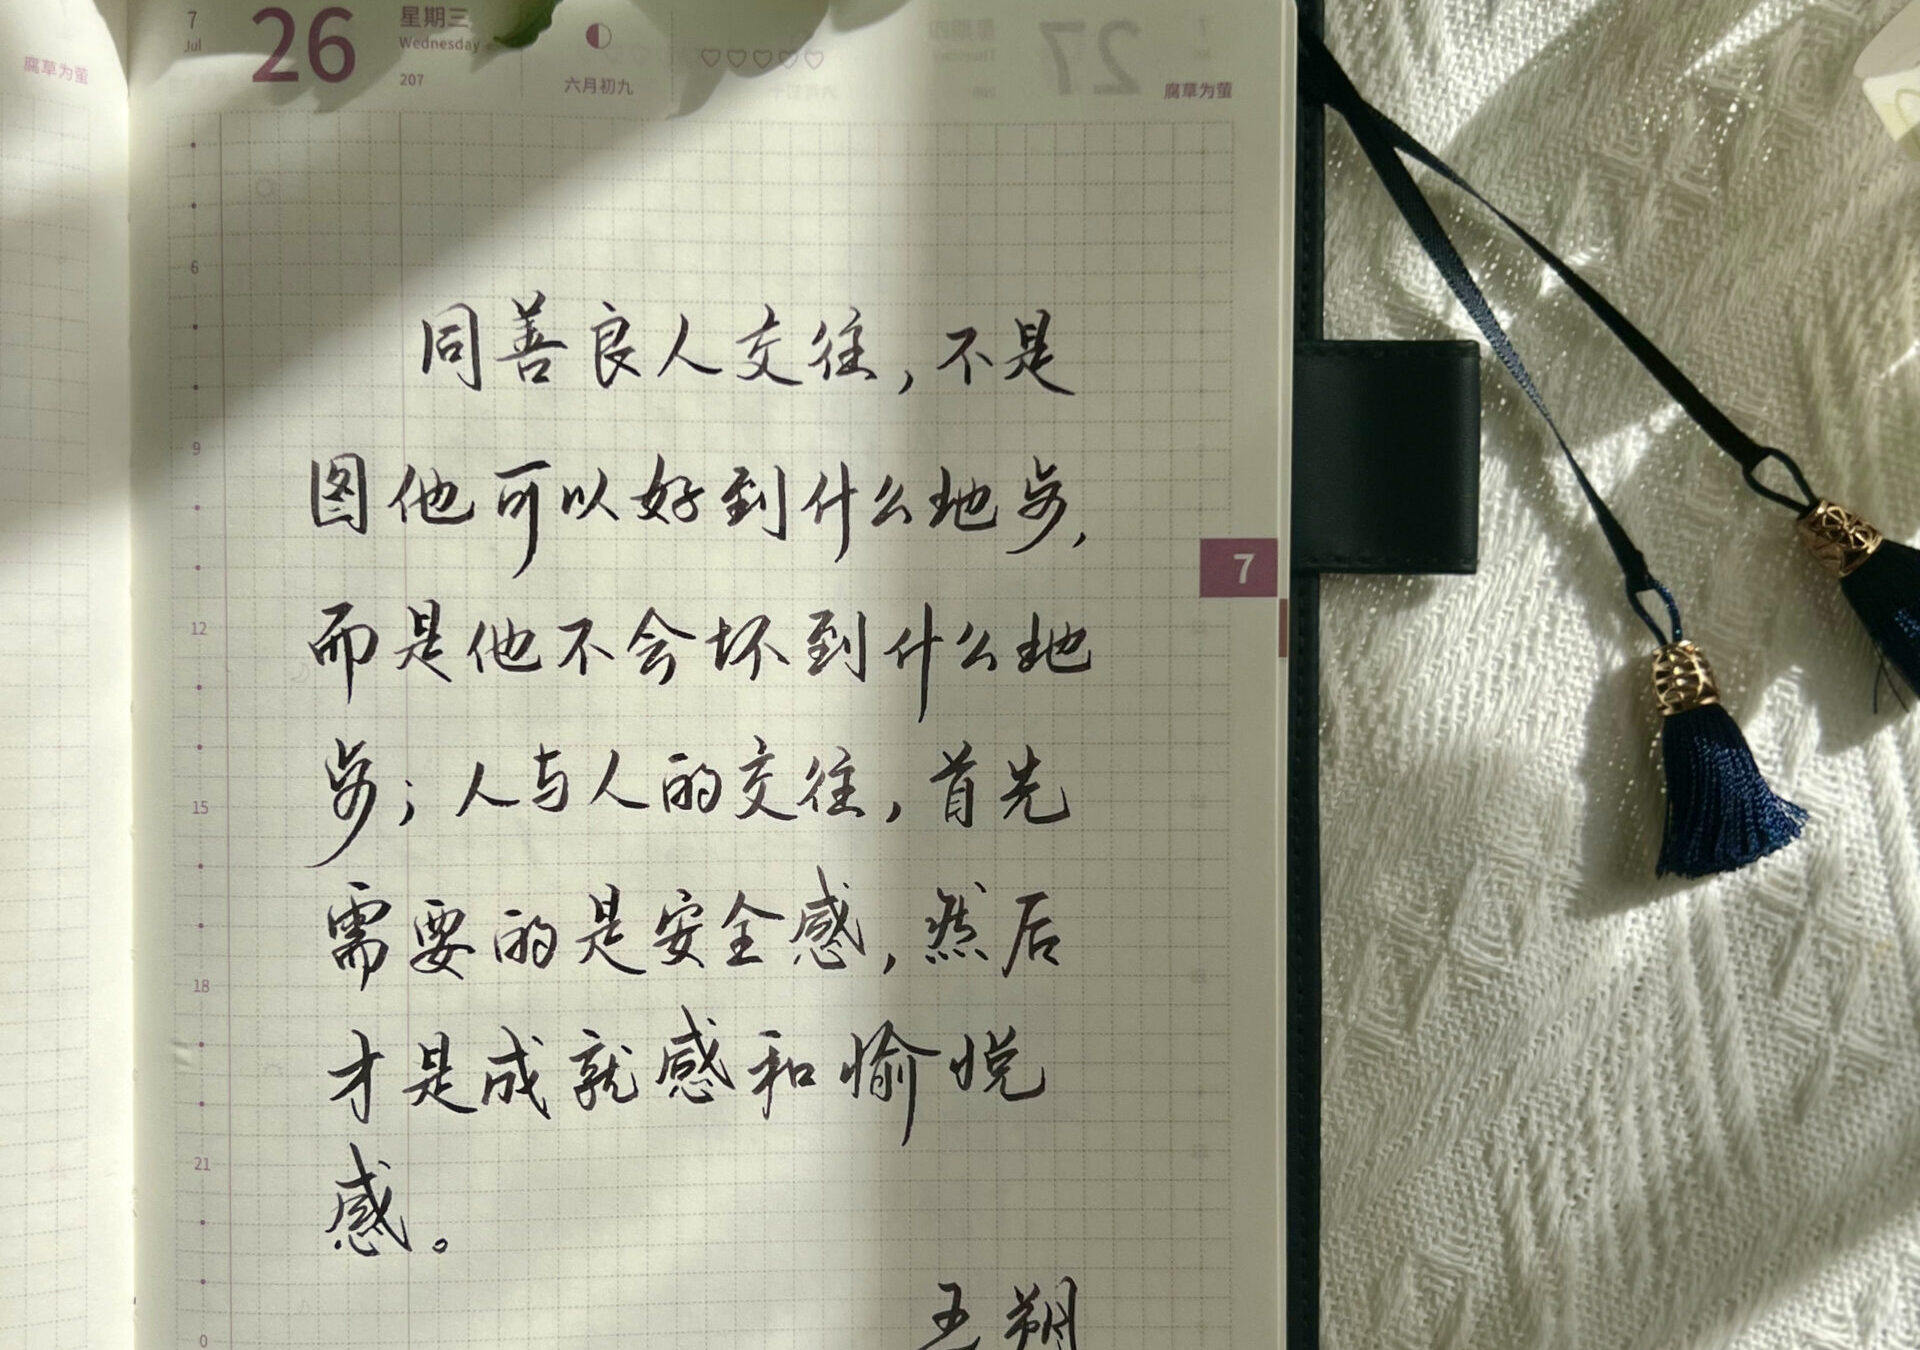 7
Jul
26
星期三
Wednesday
207
六月初九
腐草为萤
腐草为萤
27
星期四
Thursday
6
9
12
15
18
21
0
7
同善良人交往，不是
图他可以好到什么地步，
而是他不会坏到什么地
步；人与人的交往，首先
需要的是安全感，然后
才是成就感和愉悦
感。
王朔